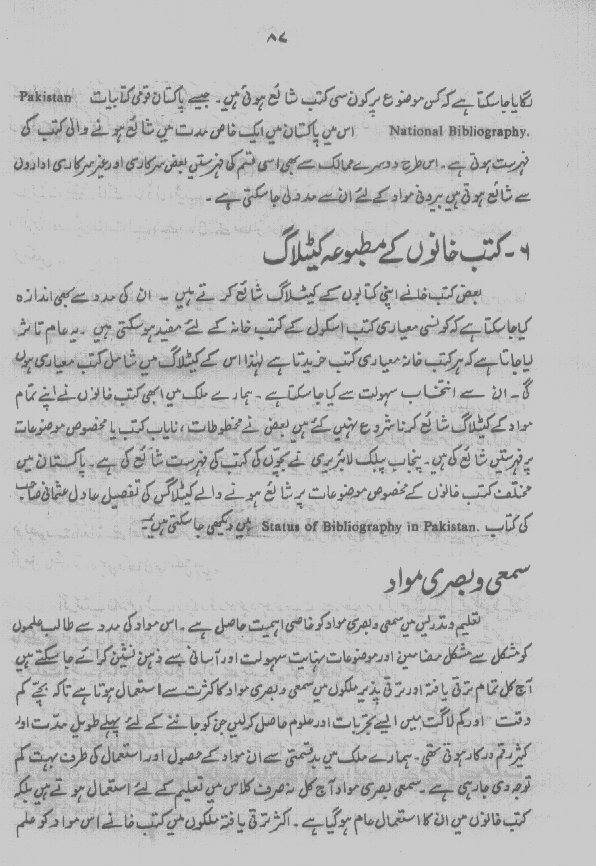 ۸۷
لگایا جا سکتا ہے کہ کس موضوع پر کون سی کتب شائع ہوئی ہیں۔ جیسے پاکستان قومی کتابیات Pakistan
National Bibliography. اس میں پاکستان میں ایک خاص مدت میں شائع ہونے والی کتب کی
فہرست ہوتی ہے۔ اس طرح دوسرے ممالک سے بھی اسی قسم کی فہرستیں بعض سرکاری اور غیر سرکاری اداروں
سے شائع ہوتی ہیں بیرونی مواد کے لئے ان سے مدد لی جا سکتی ہے۔
۶۔ کتب خانوں کے مطبوعہ کیٹلاگ
بعض کتب خانے اپنی کتابوں کے کیٹلاگ شائع کرتے ہیں۔ ان کی مدد سے بھی اندازہ
کیا جا سکتا ہے کہ کونسی معیاری کتب اسکول کے کتب خانہ کے لئے مفید ہو سکتی ہیں۔ یہ عام تاثر
لیا جاتا ہے کہ ہر کتب خانہ معیاری کتب خریدتا ہے لہٰذا اس کے کیٹلاگ میں شامل کتب معیاری ہوں
گی۔ ان سے انتخاب سہولت سے کیا جا سکتا ہے۔ ہمارے ملک میں ابھی کتب خانوں نے اپنے تمام
مواد کے کیٹلاگ شائع کرنا شروع نہیں کئے ہیں بعض نے مخطوطات، نایاب کتب یا مخصوص موضوعات
پر فہرستیں شائع کی ہیں۔ پنجاب پبلک لائبریری نے بچوں کی کتب کی فہرست شائع کی ہے۔ پاکستان میں
مختلف کتب خانوں کے مخصوص موضوعات پر شائع ہونے والے کیٹلاگس کی تفصیل عادل عثمانی صاحب
کی کتاب Status of Bibliography in Pakistan. میں دیکھی جا سکتی ہیں۔
سمعی و بصری مواد
تعلیم و تدریس میں سمعی و بصری مواد کو خاصی اہمیت حاصل ہے۔ اس مواد کی مدد سے طالب علموں
کو مشکل سے مشکل مضامین اور موضوعات نہایت سہولت اور آسانی سے ذہن نشین کرائے جا سکتے ہیں
آج کل تمام ترقی یافتہ اور ترقی پذیر ملکوں میں سمعی و بصری مواد کا کثرت سے استعمال ہوتا ہے تاکہ بچے کم
وقت اور کم لاگت میں ایسے تجربات اور علوم حاصل کر لیں جن کو جاننے کے لئے پہلے طویل مدت اور
کثیر رقم درکار ہوتی تھی۔ ہمارے ملک میں بدقسمتی سے ان مواد کے حصول اور استعمال کی طرف بہت کم
توجہ دی جا رہی ہے۔ سمعی بصری مواد آج کل نہ صرف کلاس میں تعلیم کے لئے استعمال ہوتے ہیں بلکہ
کتب خانوں میں ان کا استعمال عام ہو گیا ہے۔ اکثر ترقی یافتہ ملکوں میں کتب خانے اس مواد کو علم